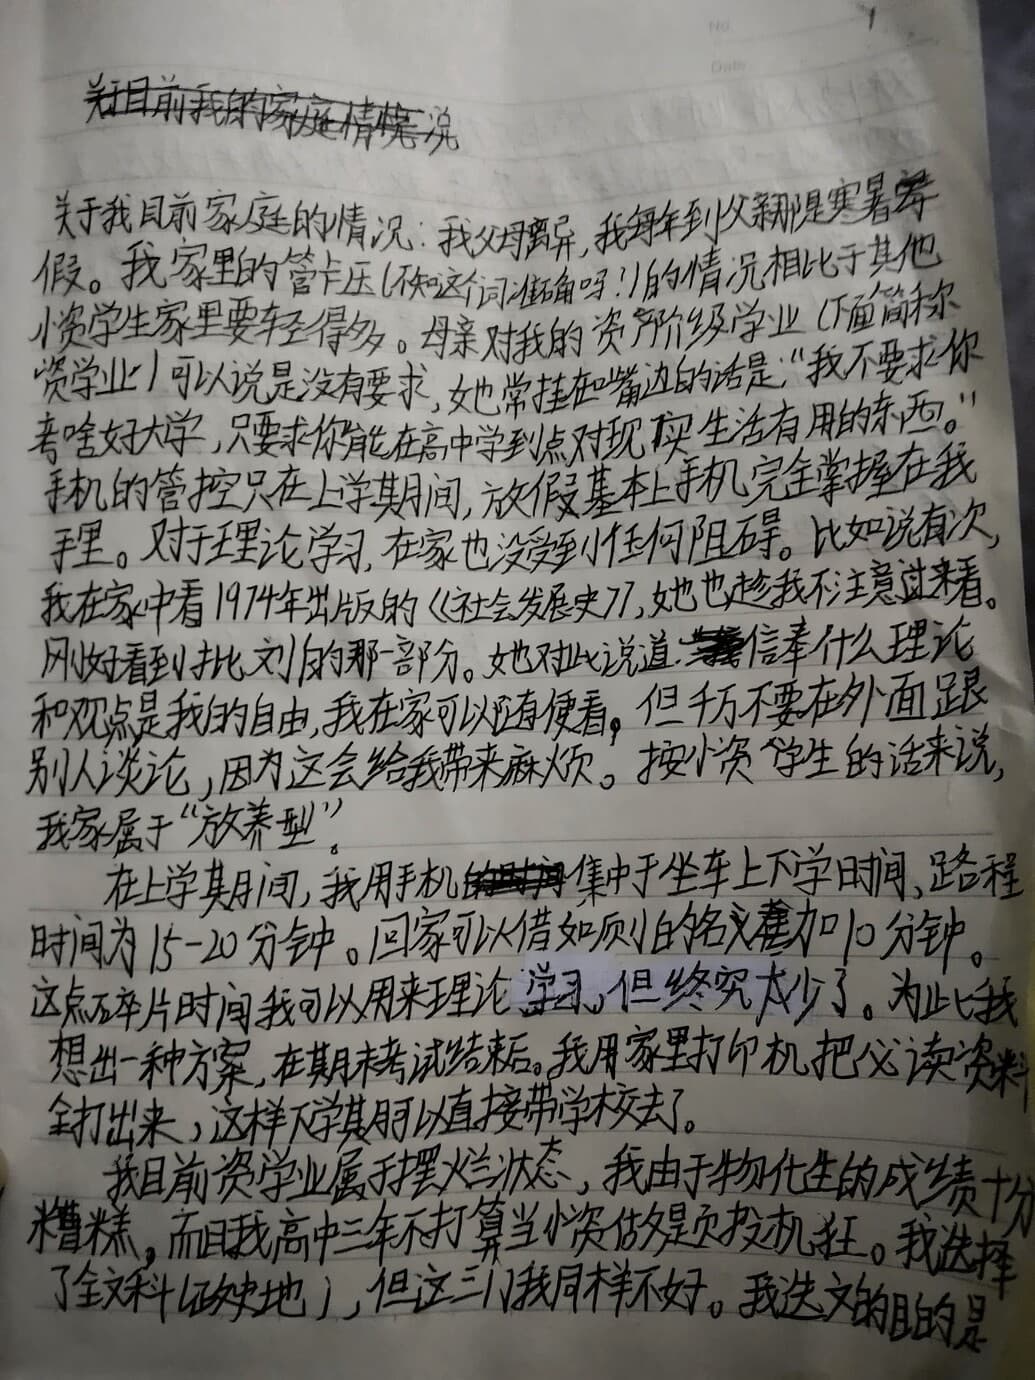 1
No
Date
关于目前我的家庭情况说
关于我目前家庭的情况：我父母离异，我每年到父亲那是寒暑
假。我家里的管卡压（不知这个词准确吗？）的情况相比于其他
小资学生家里要轻得多。母亲对我的资产阶级学业（下面简称
资学业）可以说是没有要求，她常挂在嘴边的话是：“我不要求你
考啥好大学，只要求你能在高中学到点对现实生活有用的东西。”
手机的管控只在上学期间，放假基本上手机完全掌握在我
手里。对于理论学习，在家也没受到任何阻碍。比如说有次，
我在家中看1974年出版的《社会发展史》，她也趁我不注意过来看。
刚好看到批刘的那一部分。她对此说道：信奉什么理论
和观点是我的自由，我在家可以随便看。但千万不要在外面跟
别人谈论，因为这会给我带来麻烦。按小资学生的话来说，
我家属于“放养型”。
在上学期间，我用手机集中于坐车上下学时间、路程
时间为15-20分钟。回家可以借如厕的名义增加10分钟。
这点碎片时间我可以用来理论学习，但终究太少了。为此我
想出一种方案，在期末考试结束后。我用家里打印机把必读资料
全打出来，这样下学期可以直接带学校去了。
我目前资学业属于摆烂状态，我由于物化生的成绩十分
糟糕，而且我高中三年不打算当小资做题投机狂。我选择
了全文科（政史地），但这三门我同样不好。我选文的目的是